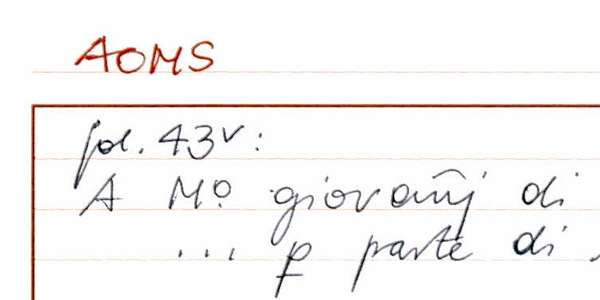 AOMS
fol. 43v:
A Mo giovañj di
... p parte di